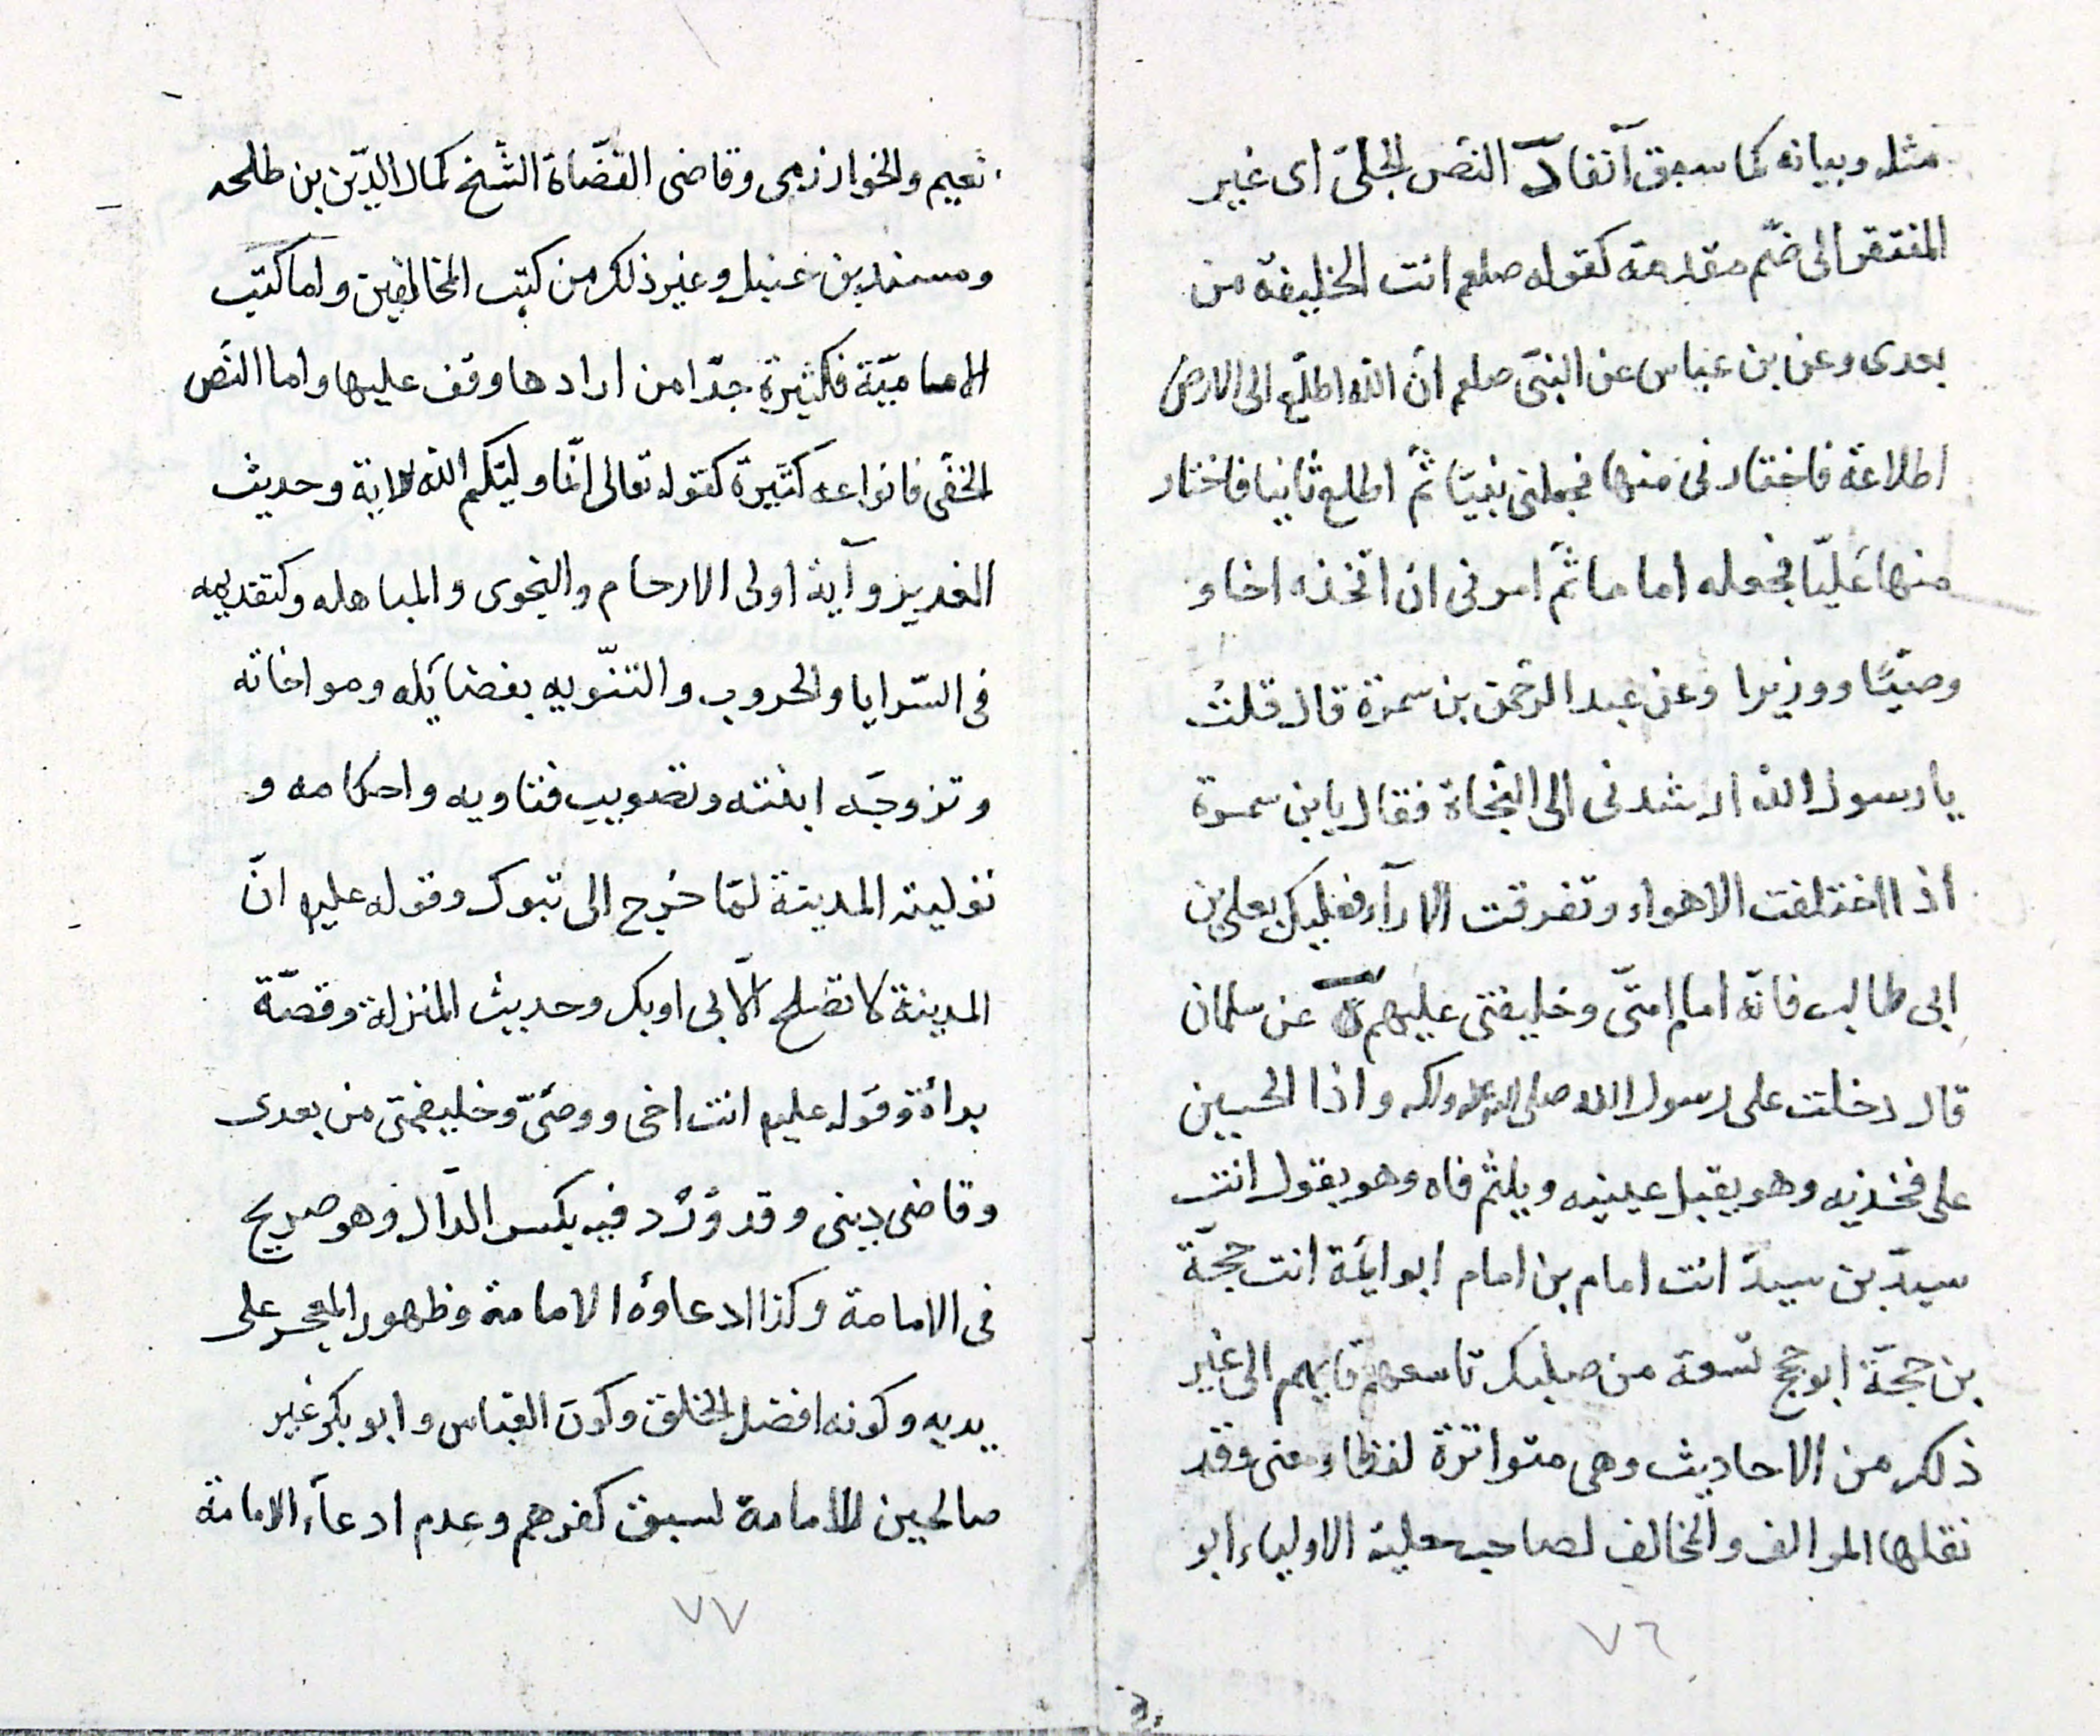 مثله وبيانه كما سبق آنفا د النص الجلىّ اى غير
المنتقر الى ضمّ مقدمة كقوله صلعم انت الخليفة من
بعدى وعن بن عباس عن النبىّ صلعم انّ الله اطلّع الى الارض
اطلاعة فاختار نى منها فجعلنى نبيّا ثمّ اطلع ثانيا فاختار
منها عليّا فجعله اماما ثمّ امرنى ان اتخذه اخا و
وصيّا ووزيرا وعن عبد الرحمن بن سمرة قال قلت
يا رسول الله ارشدنى الى النجاة فقال يابن سمرة
اذا اختلفت الاهواء وتفرقت الارآء فعليك بعلى بن
ابى طالب فانّه امام امتّى وخليفتى عليهم عن سلمان
قال دخلت على رسول الله صلى الله عليه وآله واذا الحسين
على فخذيه وهو يقبل عينيه ويلثم فاه وهو يقول انت
سيد بن سيد انت امام بن امام ابو ائمة انت حجة
بن حجّة ابو حجج تسعة من صلبك تاسعهم قايمهم الى غير
ذلك من الاحاديث وهى متواترة لفظا ومعنى وقد
نقلها الموالف والمخالف لصاحب حلية الاولياء ابو
٧٦
نعيم والخوارزمى وقاضى القضاة الشّيخ كمال الدّين بن طلحه
ومسند بن حنبل وغير ذلك من كتب المخالفين واما كتب
الامامّية فكثيرة جدّا من ارادها وقف عليها واما النّص
الخفى فانواعه كثيرة كقوله تعالى انّما وليّكم الله الاية وحديث
الغدير وآية اولى الارحام والنجوى والمباهله وكتقديمه
فى السّرايا والحروب والتنّويه بفضايله ومواخاته
وتزوجه ابنته وتصويب فتاويه واحكامه و
توليته المدينة لمّا خرج الى تبوك وقوله عليه انّ
المدينة لا تصلح الّا بى او بك وحديث المنزلة وقصّة
براة وقوله عليه انت اخى ووصىّ وخليفتى من بعدى
وقاضى دينى وقد وُرد فيه بكسر الدّال وهو صريح
فى الامامة وكذا ادعاوة الامامة وظهور المعجز على
يديه وكونه افضل الخلق وكون العباس وابو بكر غير
صالحين للامامة لسبق كفرهم وعدم ادعآء الامامة
٧٧